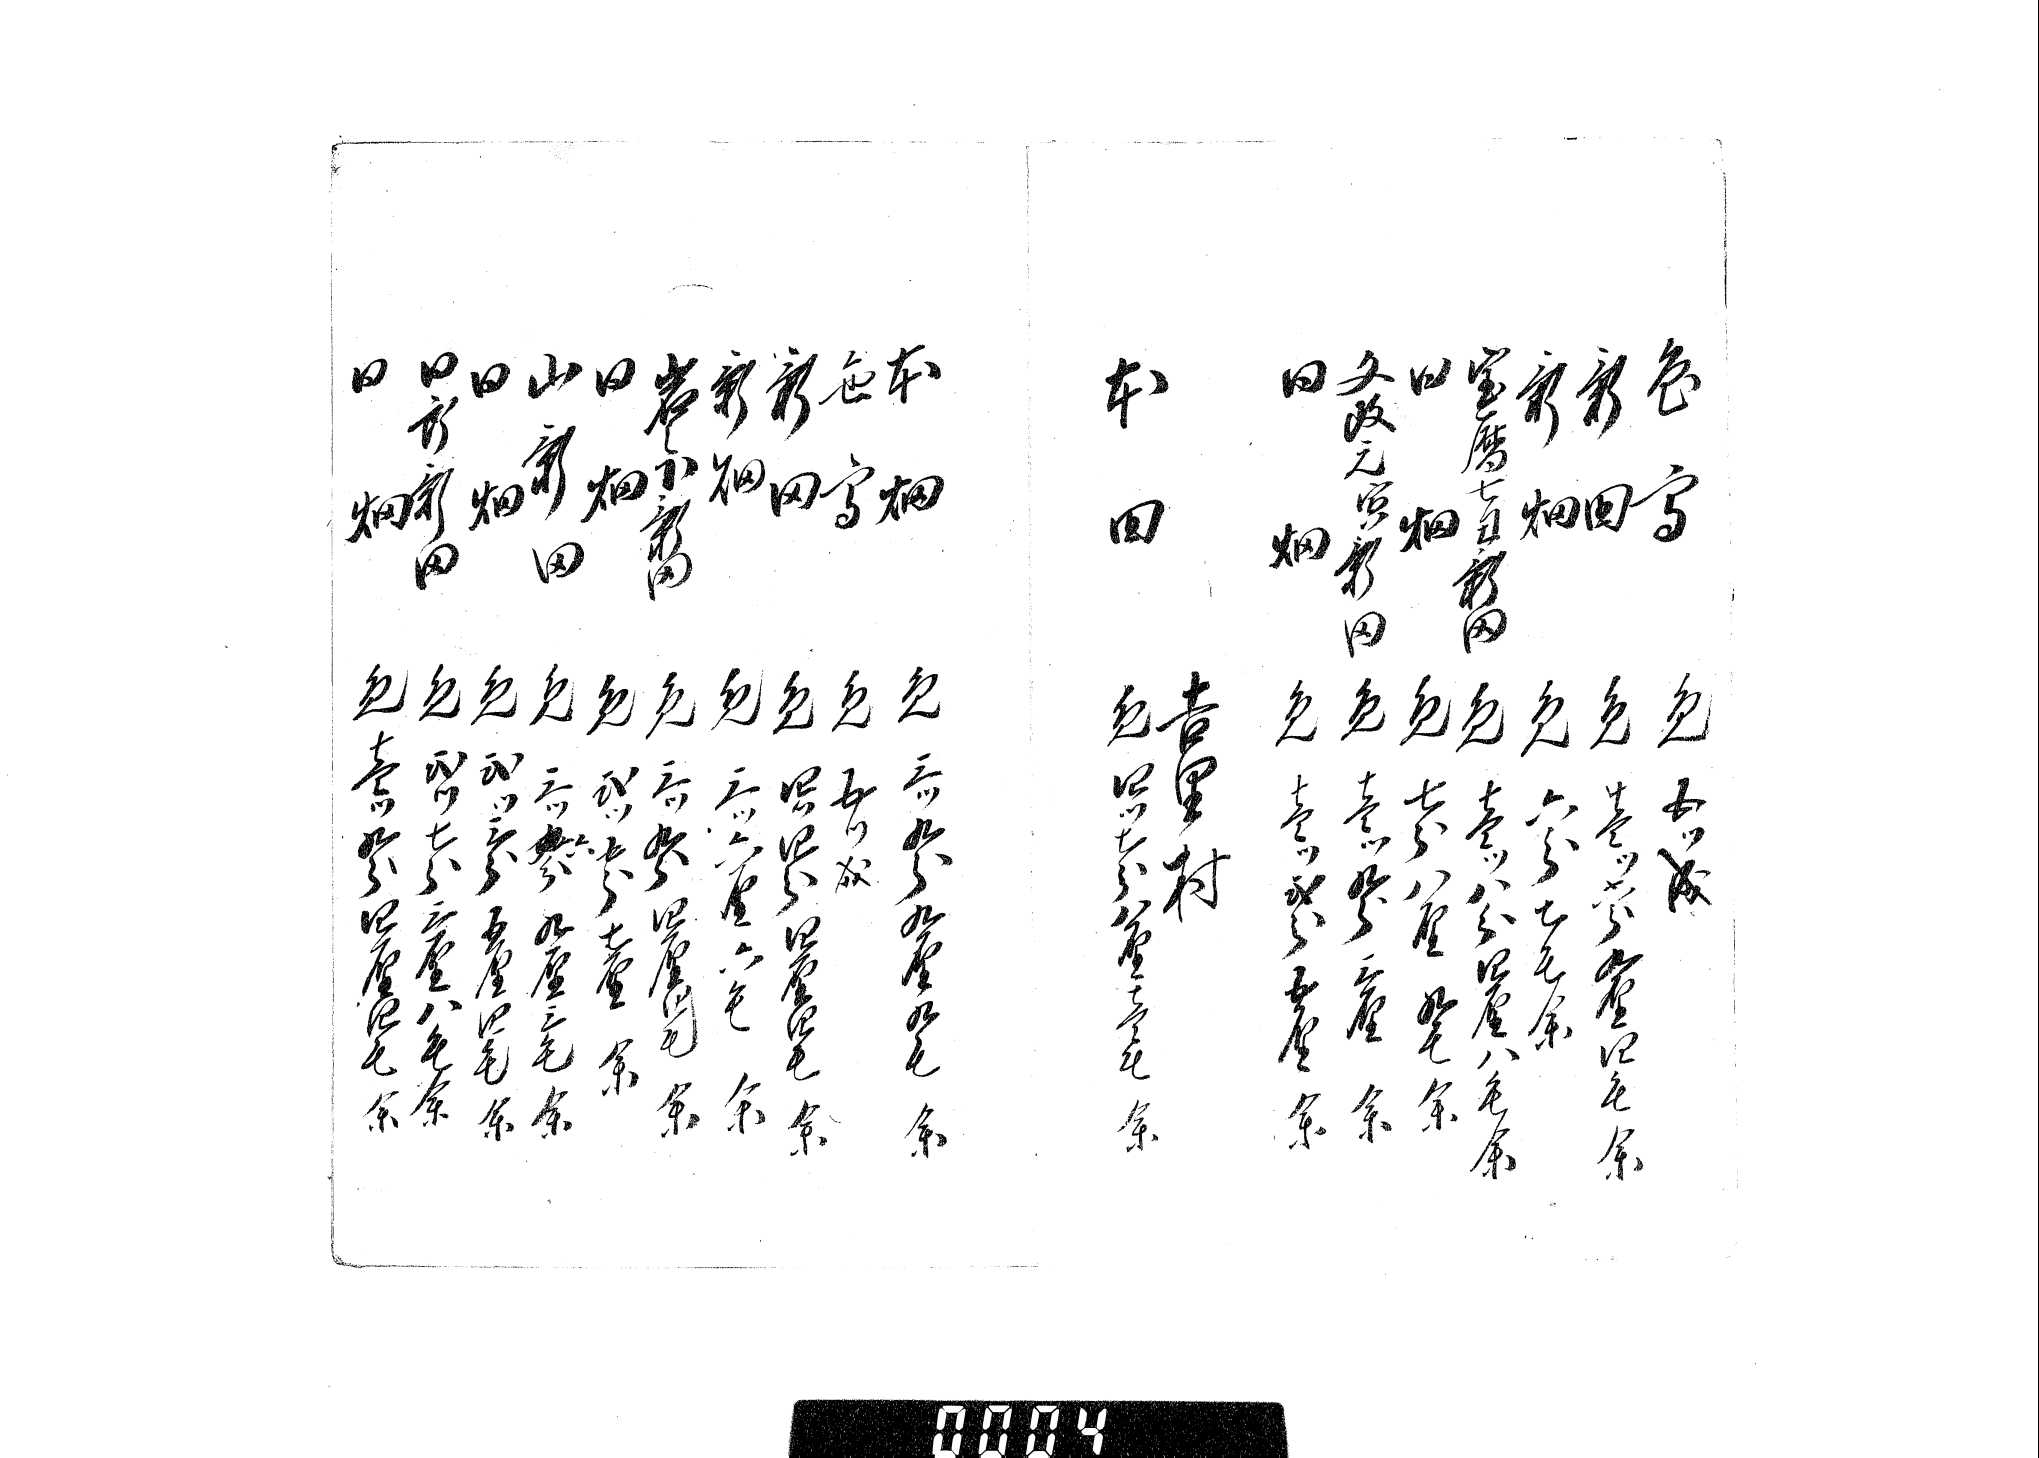 色高 免 五ツ成
新田 免 壱ツ壱分九厘四毛余
新畑 免 六分七毛余
宝暦七丑新田 免 壱ツ八分四厘八毛余
同畑 免 七分八厘九毛余
文政元寅新田 免 壱ツ九分三厘余
同畑 免 壱ツ弐分五厘余
吉里村
本田 免 四ツ七分八厘壱毛余
本畑 免 三ツ九分九厘九毛余
色高 免 五ツ成
新田 免 四ツ四分四厘四毛余
新畑 免 三ツ六厘六毛余
岩之下新田 免 三ツ九分四厘四毛余
同畑 免 弐ツ七分七厘余
山新田 免 三ツ六分九厘三毛余
同畑 免 弐ツ三分五厘四毛余
同所新田 免 弐ツ七分三厘八毛余
同畑 免 壱ツ九分四厘四毛余
0004